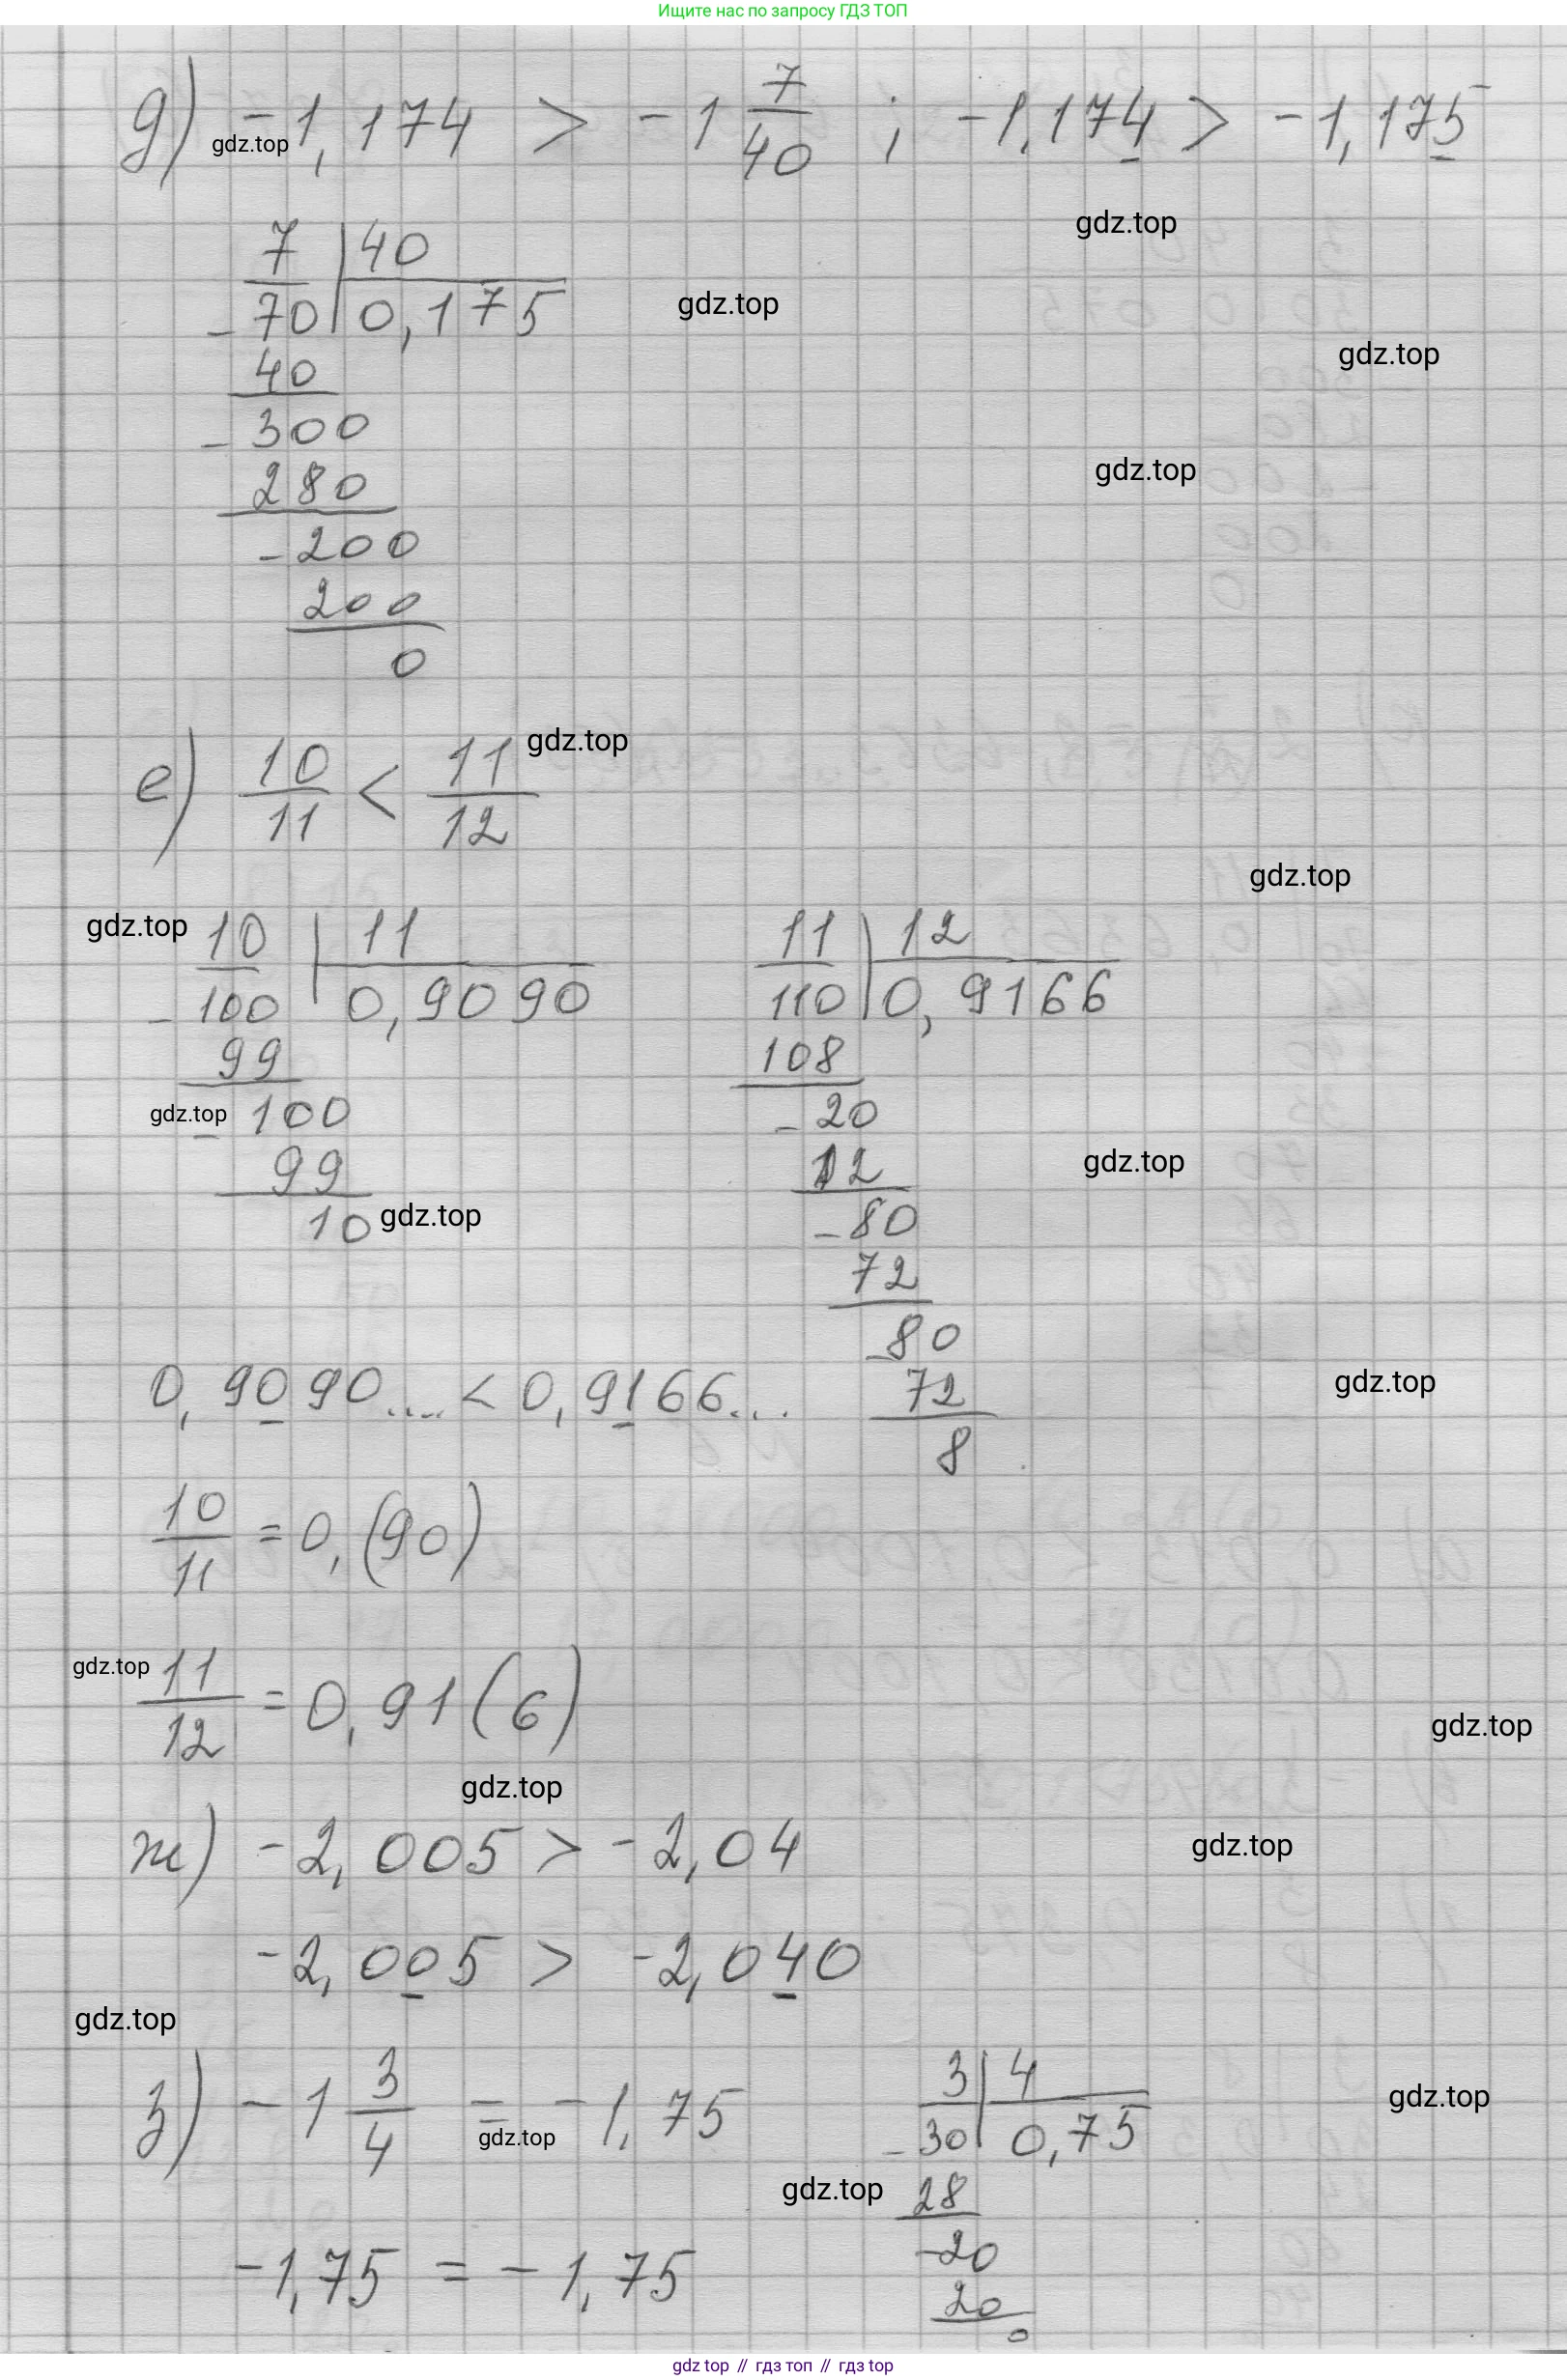 Ищите нас по запросу ГДЗ ТОП
д) -1,174 > -1 7/40 ; -1,174 > -1,175
gdz.top
gdz.top
7 | 40
-70 | 0,175
gdz.top
gdz.top
40
-300
gdz.top
280
-200
200
0
gdz.top
е) 10/11 < 11/12
gdz.top
gdz.top
10 | 11
-100 | 0,9090
99
gdz.top
-100
99
10
gdz.top
11 | 12
110 | 0,9166
108
-20
12
gdz.top
-80
72
-80
72
8
gdz.top
0,9090.... < 0,9166...
10/11 = 0,(90)
gdz.top
11/12 = 0,91(6)
gdz.top
gdz.top
ж) -2,005 > -2,04
gdz.top
-2,005 > -2,040
gdz.top
з) -1 3/4 = -1,75
gdz.top
3 | 4
-30 | 0,75
gdz.top
gdz.top
28
-20
20
0
-1,75 = -1,75
gdz top // гдз топ // гдз top